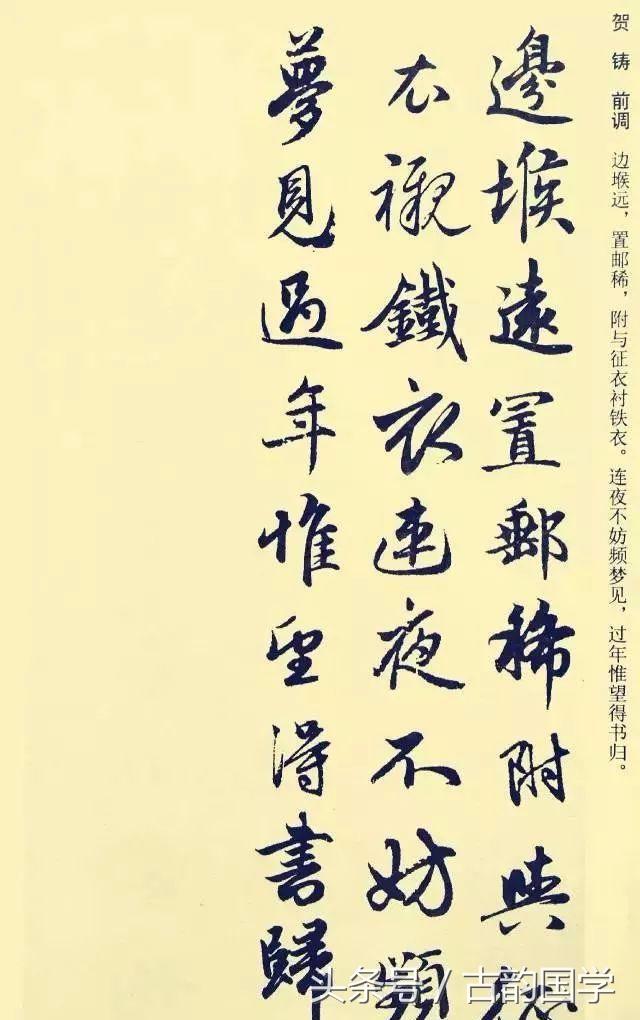 贺铸 前调 边堠远，置邮稀，附与征衣衬铁衣。连夜不妨频梦见，过年惟望得书归。
邊堠遠置郵稀附與
衣襯鐵衣連夜不妨頻
夢見過年惟望得書歸
头条号 / 古韵国学